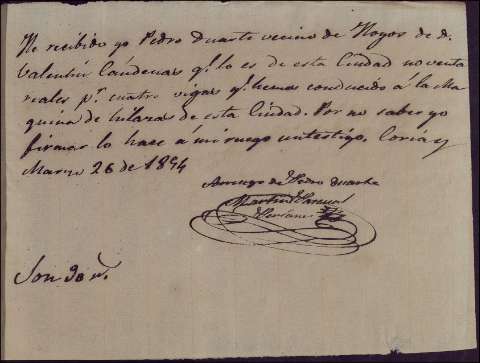 He recibido yo Pedro Duarte vecino de Hoyos de d.
Valentin Cárdenas q.e lo es de esta Ciudad noventa
reales p.r cuatro vigas q.e hemos conducido á la Ma-
quina de luz de esta Ciudad. Por no saber yo
firmar lo hace á mi ruego un testigo. Coria y
Marzo 26 de 1894
Arruego de Pedro Duarte
Martin
Son 90 r.s